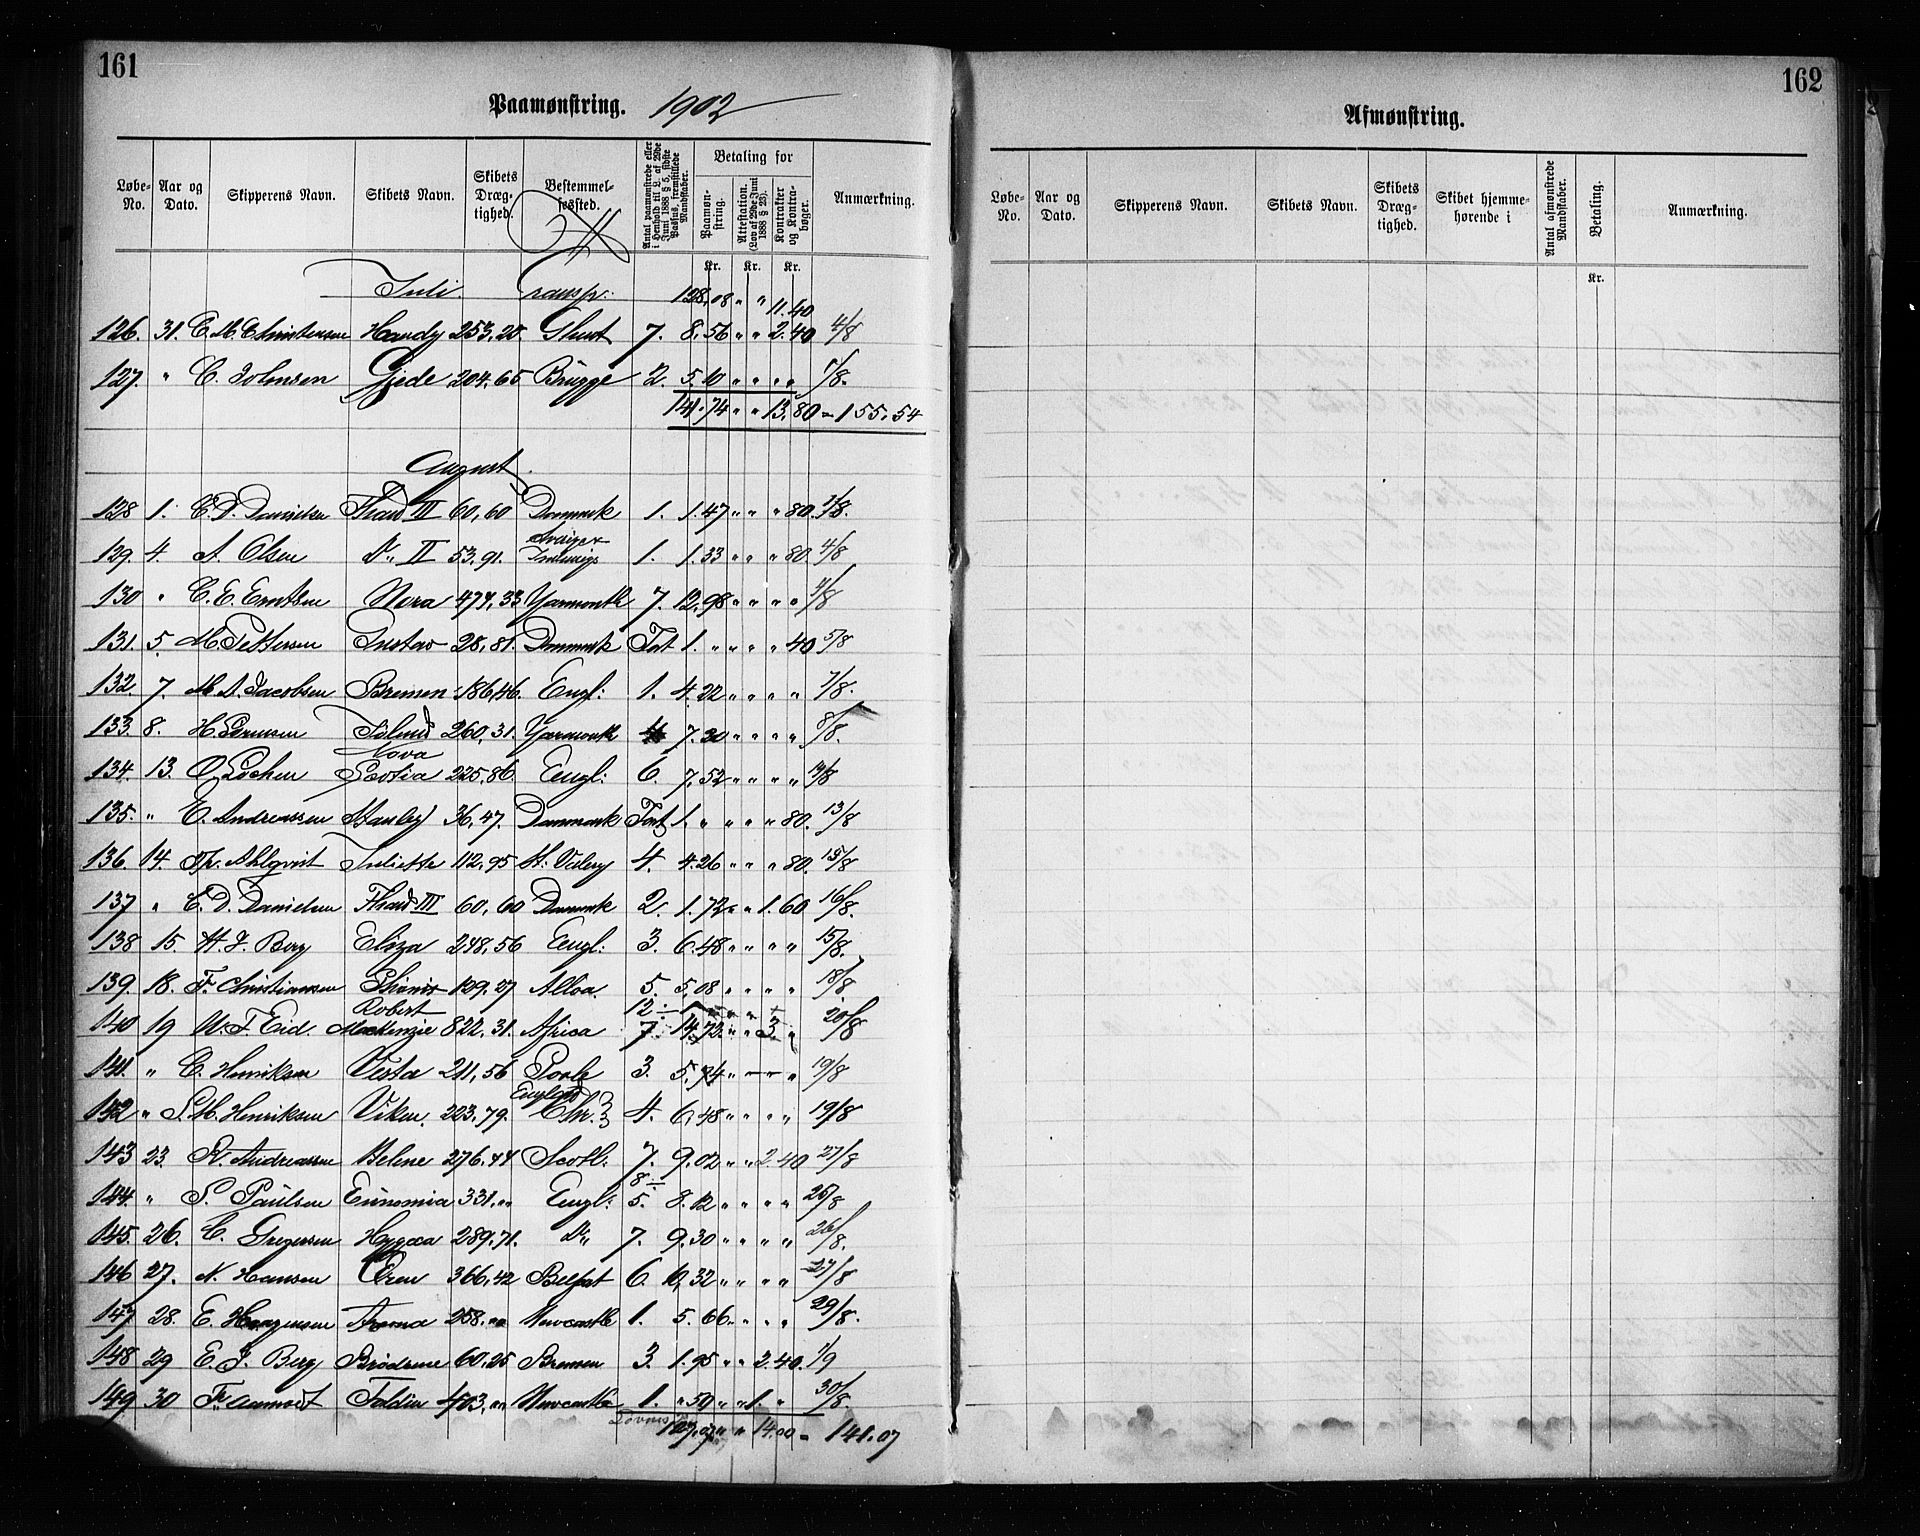 161
Paamønstring. 1902
Løbe-No.	Aar og Dato.	Skipperens Navn.	Skibets Navn.	Skibets Dræg-tighed.	Bestemmel-sessted.	Antal paamønstrede eller i Henhold til L. af 29de Juni 1888 § 5, sidste Passus, fremstillede Mandskaber.	Betaling for	Paamøn-string.	Attestation. (Lov af 29de Juni 1888 § 23).	Kontrakter og Kontra-bøger.	Anmærkning.
Kr. Kr. Kr.
Juli Transp: 128,08 " " 11.40
126. 31. C. M. Christensen Handy 253,20. Ghent 7. 8,56 " " 2.40 4/8
127. " C. Johnsen Gjede 204,65 Brügge 2. 5.10 " " " " 1/8.
141.74 " " 13,80 = 155.54
August
128 1. C. D. Danielsen Thard III 60,60 Danmark 1. 1.47 " " " 80. 1/8.
129. 4. A. Olsen Do II 53,91. 1. 1.33 " " " 80. 4/8
130 " C. E. Erntsen Nora 474,33 Yarmouth 7. 12,98 " " " " 4/8
131. 5. M. Pettersen Gustav 28,81. Danmark Fort 1. " " " " 40 5/8
132. 7. M. A. Jacobsen Bremen 186,46. Engl: 1. 4.22 " " " " 7/8.
133. 8. H. Sørensen 260,31. Yarmouth 7.30 " " " " 8/8.
134. 13. O. Lochen Nova Scotia 225,86. Engl: 6. 7,52 " " " " 14/8
135. " E. Andreassen Stanley 36,47. Danmark Fort 1. " " " " 80. 13/8
136. 14. Fr. Ahlqvist Juliette 112,95 H. Viborg 4. 4.26 " " " 80. 15/8
137 " C. D. Danielsen Thard III 60,60 Danmark 2. 1.72 " " 1.60 16/8.
138 15. H. J. Berg Eliza 248,56 Engl: 3. 6.48 " " " " 15/8.
139. 18. F. Christiansen 129.27 Alloa. 5. 5,08 " " " " 18/8
140 19 N. T. Eid. Robert MacKenzie 822,31. Africa 12 ÷ 7 14.72 " " 3. " 20/8
141. " C. Henriksen Vesta 211,56 Poole 3. 5,74 " — " " 19/8
142 " S. M. Henriksen Viken. 223,79. England Chr. 4. 6,48 " " " " 19/8
143 23. A. Andreassen Helene 276.44 Scotl: 7. 9.02 " " 2.40 27/8
144. " S. Paulsen Eunomia 331." Engl: 8 ÷ 5. 8.12 " " " " 25/8
145. 26. C. Gregersen Hygæa 289,71. Do 7. 9.30 " " " " 26/8.
146 27. N. Hansen Ören 366,42 Belfast 6. 10,32 " " " " 27/8
147 28. E. Haagensen 258." Newcastle 1. 5.66 " " " " 29/8.
148 29 E. J. Berg Brødrene 60.25 Bremen 3. 1.95 " " 2.40. 1/9
149 30 Fr. Aamodt Foldin 403." Newcastle 1. ".59 " " 1. " 30/8.
127.07 " " 14.00 = 141.07
162
Afmønstring.
Løbe-No.	Aar og Dato.	Skipperens Navn.	Skibets Navn.	Skibets Dræg-tighed.	Skibet hjemme-hørende i	Antal afmønstrede Mandskaber.	Betaling.	Anmærkning.
Kr.